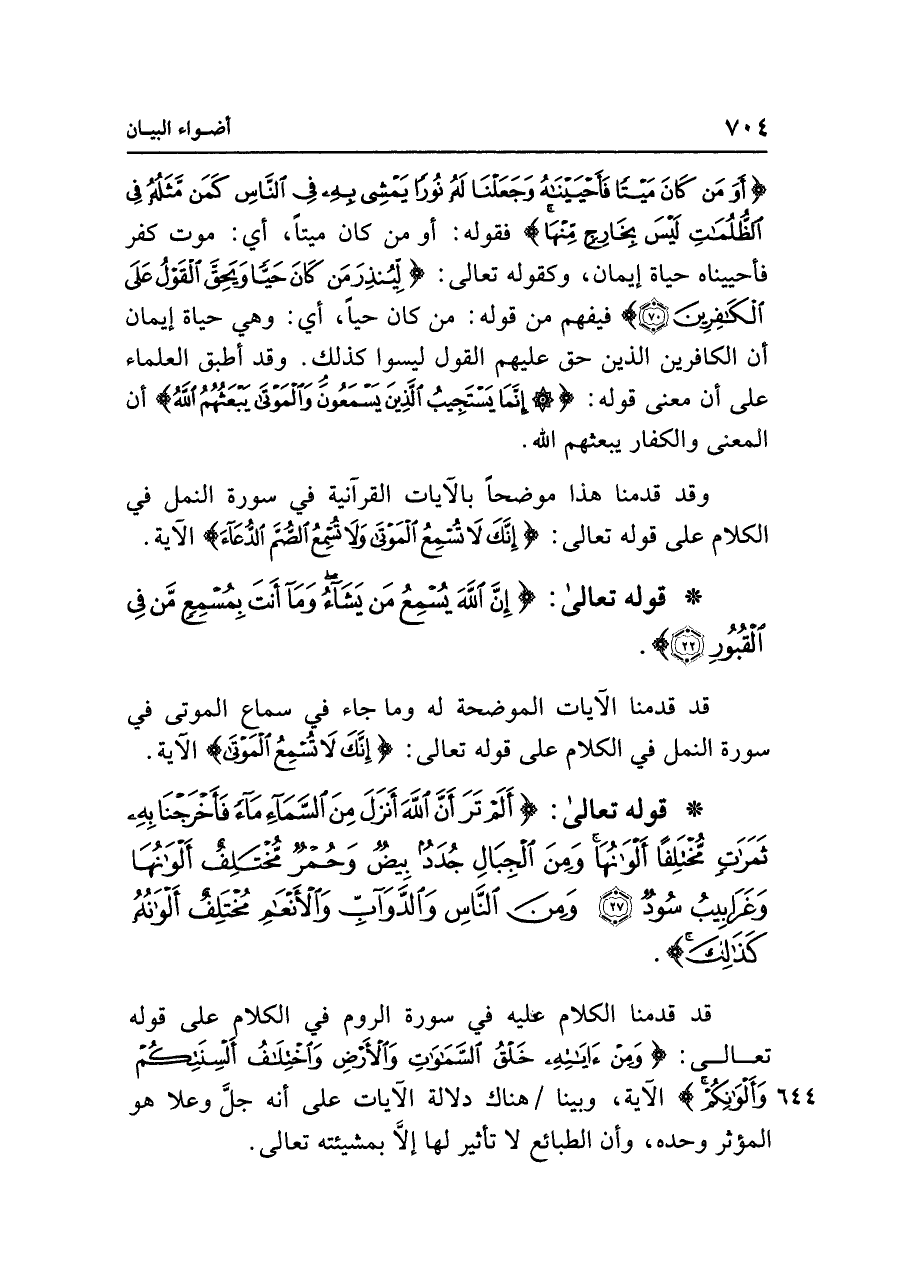 ٧٠٤ أضواء البيان
﴿أَوَ مَن كَانَ مَيْتًا فَأَحْيَيْنَٰهُ وَجَعَلْنَا لَهُۥ نُورًا يَمْشِى بِهِۦ فِى ٱلنَّاسِ كَمَن مَّثَلُهُۥ فِى
ٱلظُّلُمَٰتِ لَيْسَ بِخَارِجٍ مِّنْهَا ۚ﴾ فقوله: أو من كان ميتاً، أي: موت كفر
فأحييناه حياة إيمان، وكقوله تعالى: ﴿لِّيُنذِرَ مَن كَانَ حَيًّا وَيَحِقَّ ٱلْقَوْلُ عَلَى
ٱلْكَٰفِرِينَ ۝٧٠﴾ فيفهم من قوله: من كان حياً، أي: وهي حياة إيمان
أن الكافرين الذين حق عليهم القول ليسوا كذلك. وقد أطبق العلماء
على أن معنى قوله: ﴿۞ إِنَّمَا يَسْتَجِيبُ ٱلَّذِينَ يَسْمَعُونَ ۘ وَٱلْمَوْتَىٰ يَبْعَثُهُمُ ٱللَّهُ﴾ أن
المعنى والكفار يبعثهم الله.
وقد قدمنا هذا موضحاً بالآيات القرآنية في سورة النمل في
الكلام على قوله تعالى: ﴿إِنَّكَ لَا تُسْمِعُ ٱلْمَوْتَىٰ وَلَا تُسْمِعُ ٱلصُّمَّ ٱلدُّعَآءَ﴾ الآية.
* قوله تعالىٰ: ﴿إِنَّ ٱللَّهَ يُسْمِعُ مَن يَشَآءُ ۖ وَمَآ أَنتَ بِمُسْمِعٍ مَّن فِى
ٱلْقُبُورِ ۝٢٢﴾.
قد قدمنا الآيات الموضحة له وما جاء في سماع الموتى في
سورة النمل في الكلام على قوله تعالى: ﴿إِنَّكَ لَا تُسْمِعُ ٱلْمَوْتَىٰ﴾ الآية.
* قوله تعالىٰ: ﴿أَلَمْ تَرَ أَنَّ ٱللَّهَ أَنزَلَ مِنَ ٱلسَّمَآءِ مَآءً فَأَخْرَجْنَا بِهِۦ
ثَمَرَٰتٍ مُّخْتَلِفًا أَلْوَٰنُهَا ۚ وَمِنَ ٱلْجِبَالِ جُدَدٌۢ بِيضٌ وَحُمْرٌ مُّخْتَلِفٌ أَلْوَٰنُهَا
وَغَرَابِيبُ سُودٌ ۝٢٧ وَمِنَ ٱلنَّاسِ وَٱلدَّوَآبِّ وَٱلْأَنْعَٰمِ مُخْتَلِفٌ أَلْوَٰنُهُۥ
كَذَٰلِكَ ۗ﴾.
قد قدمنا الكلام عليه في سورة الروم في الكلام على قوله
تعالى: ﴿وَمِنْ ءَايَٰتِهِۦ خَلْقُ ٱلسَّمَٰوَٰتِ وَٱلْأَرْضِ وَٱخْتِلَٰفُ أَلْسِنَتِكُمْ
٦٤٤ وَأَلْوَٰنِكُمْ ۚ﴾ الآية، وبينا / هناك دلالة الآيات على أنه جلَّ وعلا هو
المؤثر وحده، وأن الطبائع لا تأثير لها إلاَّ بمشيئته تعالى.